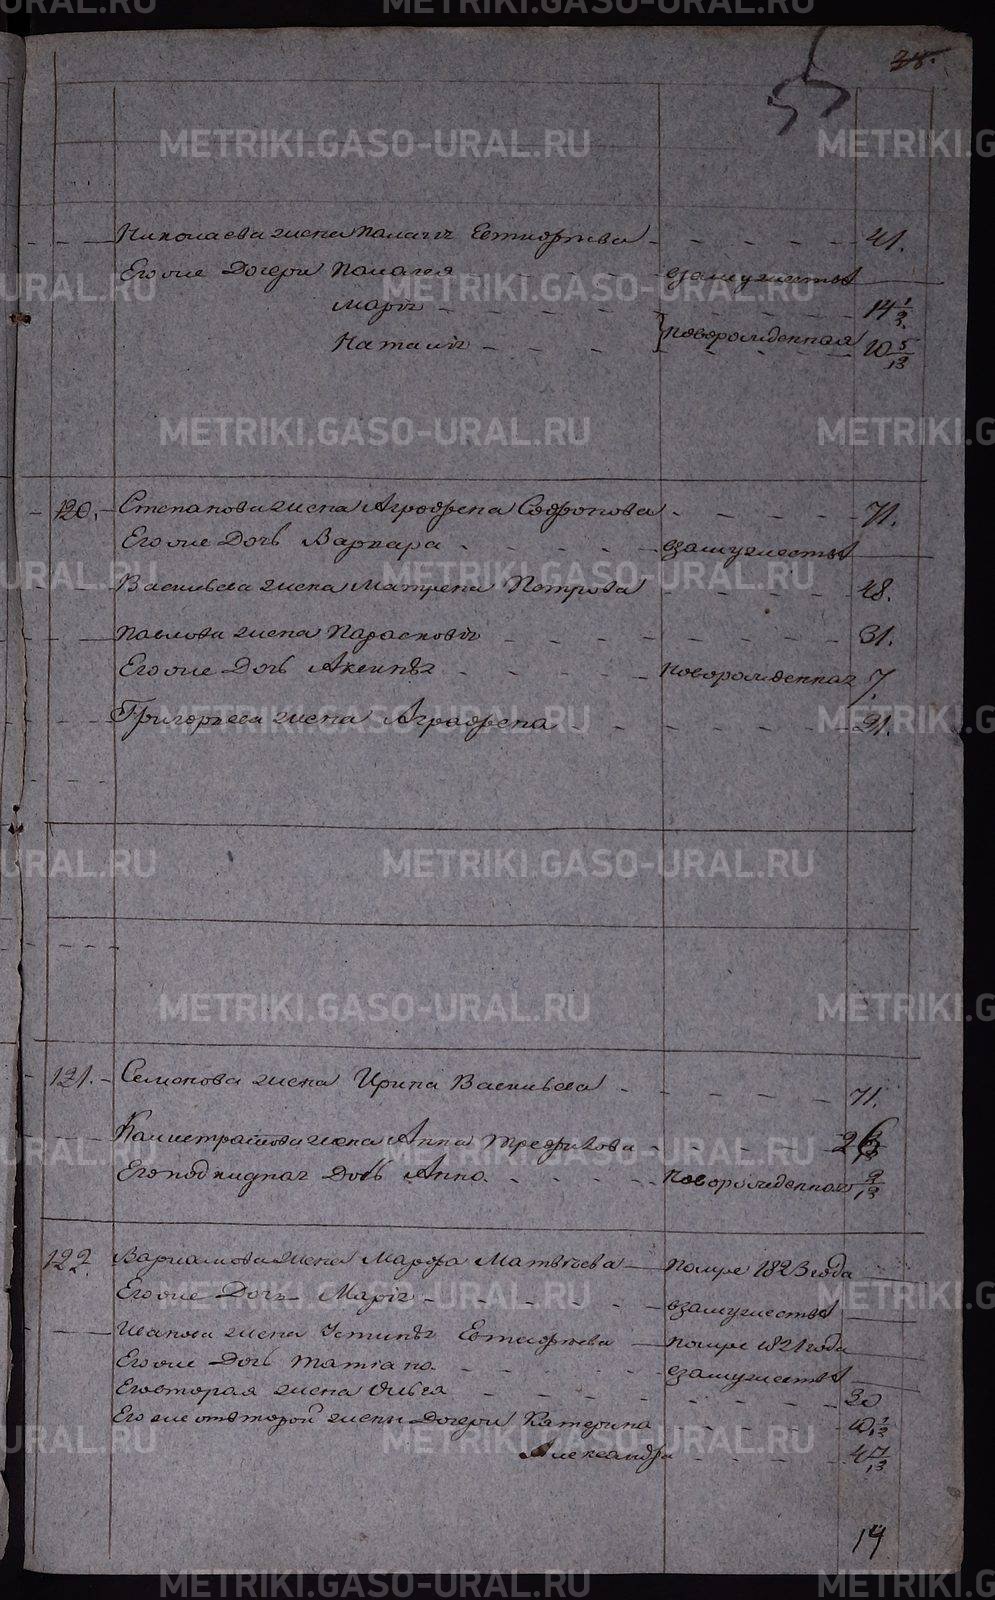 38.
55
Николаева жена Палагѣ Евтифѣева 41.
Его же Дочери Палагея взамужествѣ
Марiя 14 1/2
Наталiя новорожденная 10 5/12
120. Степанова жена Аграфена Софронова 71.
Его же Дочь Варвара взамужествѣ
Васильева жена Матрена Петрова 48.
Павлова жена Парасковiя 31.
Его же Дочь Аксинья новорожденная 7.
Григорьева жена Аграфена 21.
121. Семенова жена Ирина Васильева 71.
Калистратова жена Анна Трефилова 26
Его подкидная Дочь Анна новорожденная 9/12
122. Варламова жена Марфа Матвѣева помре 1823 года
Его же Дочь Марiя взамужествѣ
Иванова жена Устинья Евтифѣева помре 1821 года
Его же Дочь Татiана взамужествѣ
Его вторая жена Ольга 30
Его же от второй жены Дочери Катерина 10 1/2
Александра 4 7/12
14
METRIKI.GASO-URAL.RU